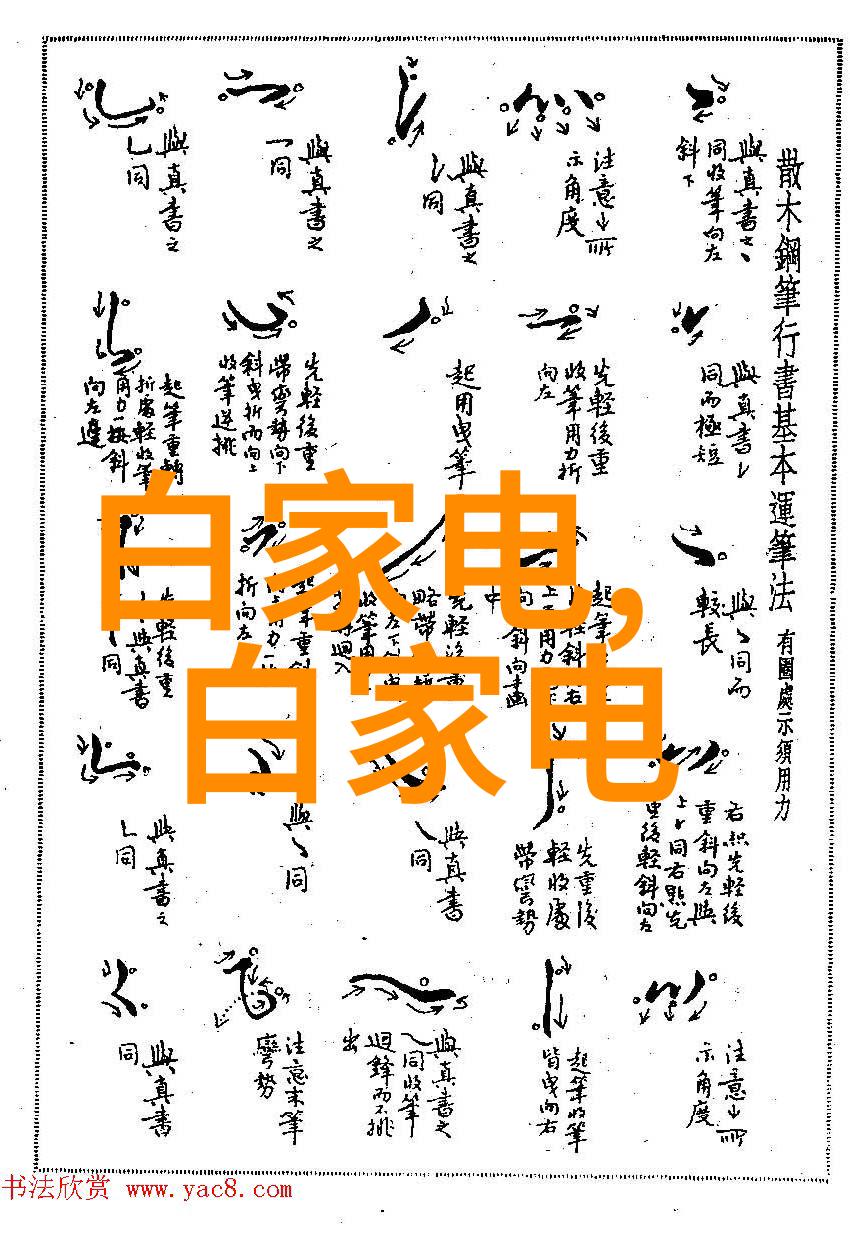 散木鋼筆行書基本運筆法 有圈處示須用力
與真書之丶
同收筆向左
斜下
注意↓所
示角度
與真書之
同
與真書之
一同
與真書之
乚同
與真書
同而極短
先輕後重
收筆用力折
向左
起用曳筆
先輕後重
帶彎勢向下
斜曳折而向上
收筆逆挑
起筆重轉
折處輕收筆
用力一撗斜
向左邊
與丶同而
較長
折向左
先輕後重
與真書
同
白家电,
白家电
右點先輕後
重斜向左與
上同右點先
重後輕斜向左
先重後
輕收處
帶彎勢
與真書
同
與丶同
與真書之
乚同
注意↓所
示角度
起筆收筆
皆曳向右
與真書之
乀同收筆
迴鋒而不挑
出
注意末筆
彎勢
與真書
同
书法欣赏 www.yac8.com